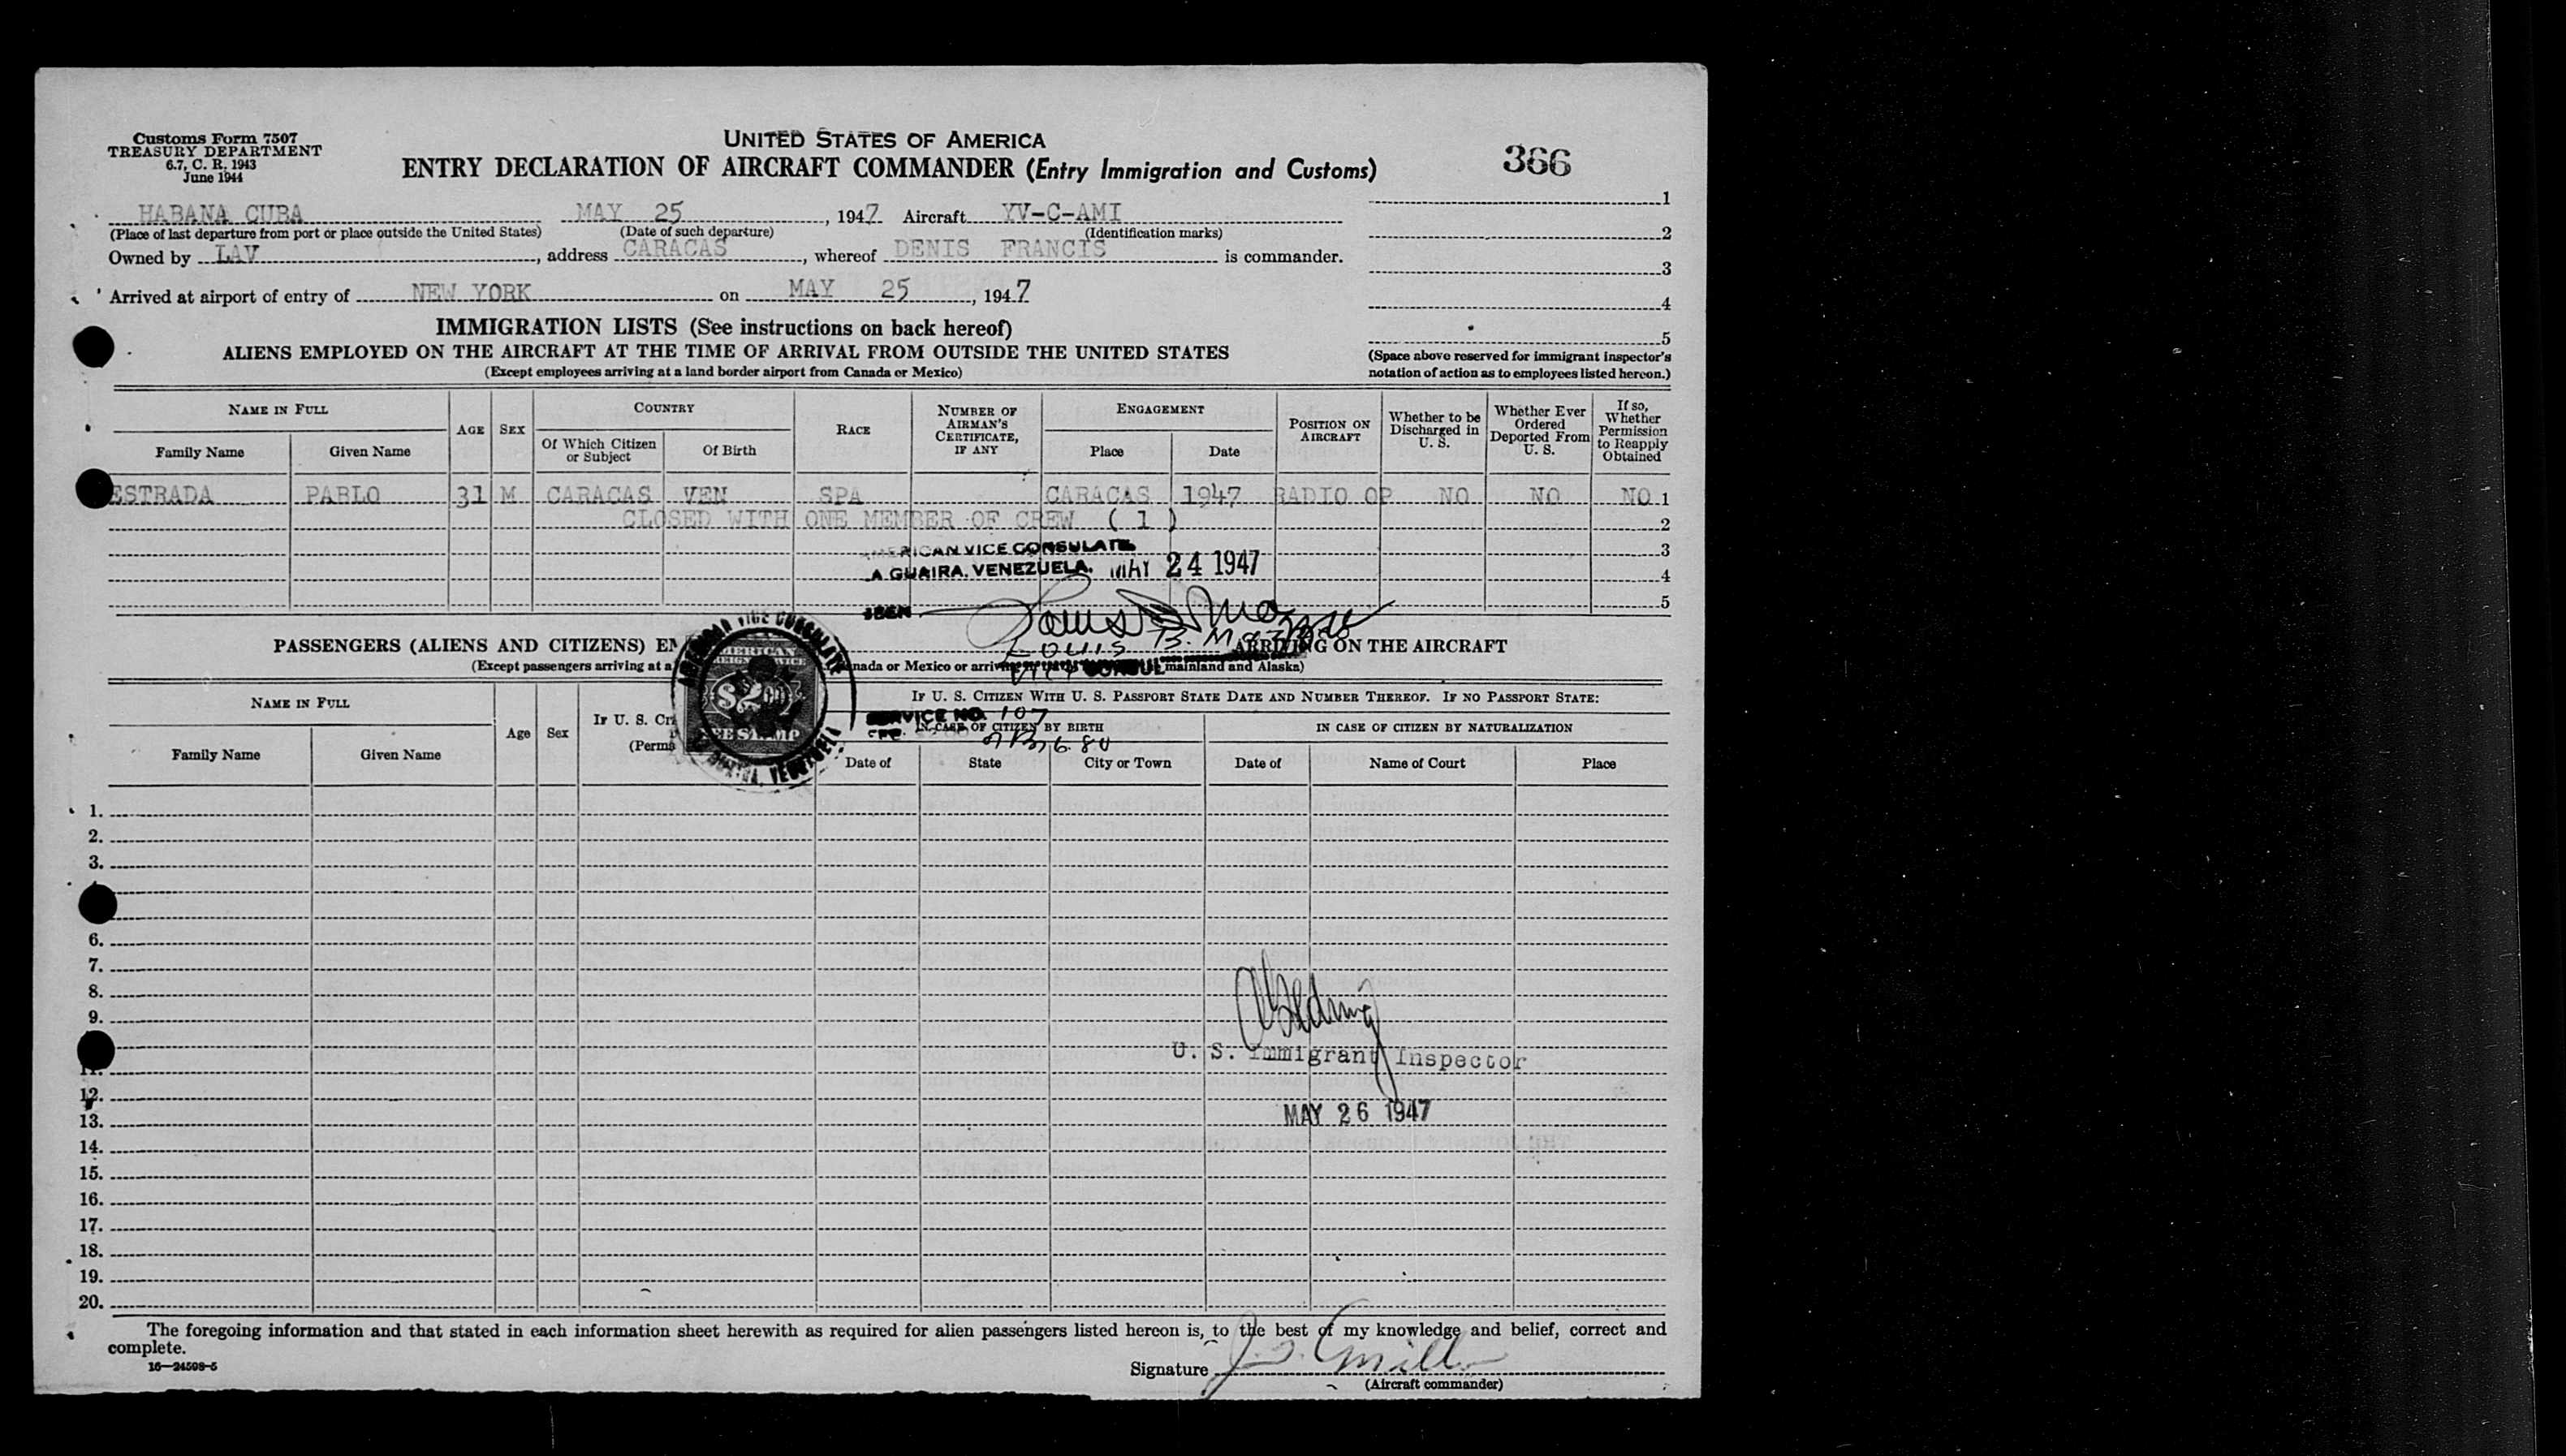 Customs Form 7507
TREASURY DEPARTMENT
6.7, C. R. 1943
June 1944
UNITED STATES OF AMERICA
ENTRY DECLARATION OF AIRCRAFT COMMANDER (Entry Immigration and Customs)
366
HABANA CUBA MAY 25, 1947 Aircraft YV-C-AMI
(Place of last departure from port or place outside the United States) (Date of such departure) (Identification marks)
Owned by LAV, address CARACAS, whereof DENIS FRANCIS is commander.
Arrived at airport of entry of NEW YORK on MAY 25, 1947
1
2
3
4
5
(Space above reserved for immigrant inspector's
notation of action as to employees listed hereon.)
IMMIGRATION LISTS (See instructions on back hereof)
ALIENS EMPLOYED ON THE AIRCRAFT AT THE TIME OF ARRIVAL FROM OUTSIDE THE UNITED STATES
(Except employees arriving at a land border airport from Canada or Mexico)
NAME IN FULL
Family Name Given Name
AGE
SEX
COUNTRY
Of Which Citizen
or Subject
Of Birth
RACE
NUMBER OF
AIRMAN'S
CERTIFICATE,
IF ANY
ENGAGEMENT
Place Date
POSITION ON
AIRCRAFT
Whether to be
Discharged in
U. S.
Whether Ever
Ordered
Deported From
U. S.
If so,
Whether
Permission
to Reapply
Obtained
ESTRADA PABLO 31 M CARACAS VEN SPA CARACAS 1947 RADIO OP NO NO NO 1
CLOSED WITH ONE MEMBER OF CREW ( 1 ) 2
AMERICAN VICE CONSULATE 3
LA GUAIRA, VENEZUELA. MAY 24 1947 4
SEEN 5
PASSENGERS (ALIENS AND CITIZENS) ARRIVING ON THE AIRCRAFT
Louis B.
(Except passengers arriving at a Canada or Mexico or mainland and Alaska)
VICE CONSUL
AMERICAN VICE CONSULATE
AMERICAN
FOREIGN SERVICE
$2.00
FEE STAMP
LA GUAIRA, VENEZUELA
NAME IN FULL
Family Name Given Name
Age
Sex
IF U. S.
(Perma
IF U. S. CITIZEN WITH U. S. PASSPORT STATE DATE AND NUMBER THEREOF. IF NO PASSPORT STATE:
SERVICE NO. 107
IN CASE OF CITIZEN BY BIRTH
IN CASE OF CITIZEN BY NATURALIZATION
Date of State City or Town Date of Name of Court Place
1.
2.
3.
6.
7.
8.
9.
11.
12.
13.
14.
15.
16.
17.
18.
19.
20.
U. S. Immigrant Inspector
MAY 26 1947
The foregoing information and that stated in each information sheet herewith as required for alien passengers listed hereon is, to the best of my knowledge and belief, correct and
complete.
16—24598-5
Signature
(Aircraft commander)